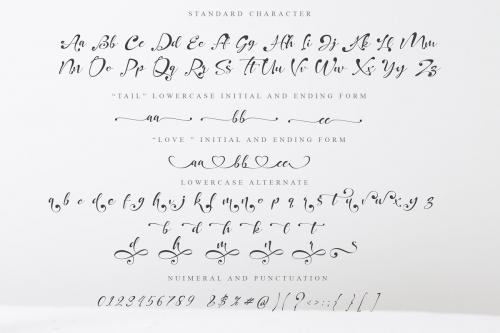 STANDARD CHARACTER
Aa Bb Cc Dd Ee Ff Gg Hh Ii Jj Kk Ll Mm
Nn Oo Pp Qq Rr Ss Tt Uu Vv Ww Xx Yy Zz
“TAIL” LOWERCASE INITIAL AND ENDING FORM
aa bb cc
“LOVE” INITIAL AND ENDING FORM
aa bb cc
LOWERCASE ALTERNATE
a b c d e f g h i j k l m n o p q r s t u v w x y z
b d h k l t
d h m n r s
NUIMERAL AND PUNCTUATION
0123456789 &$%#@)(?<>:;{}[]